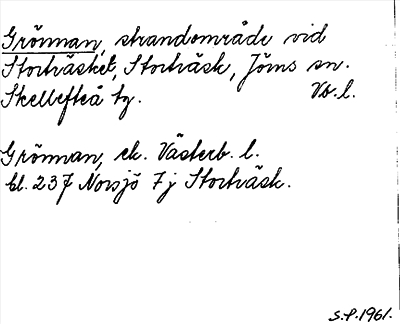 Grönnan, strandområde vid
Storträsket, Storträsk, Jörns sn.
Skellefteå tg. Vb. l.
Grönnan, ek. Västerb. l.
bl. 237 Norsjö 7j Storträsk.
S.P.1961.